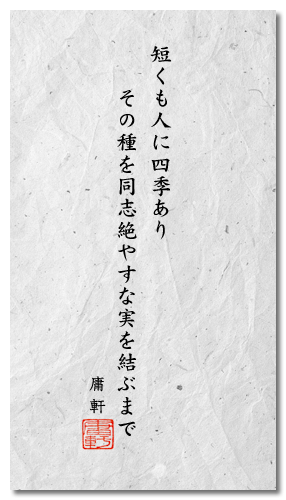 短くも人に四季あり
その種を同志絶やすな実を結ぶまで
庸軒
庸軒